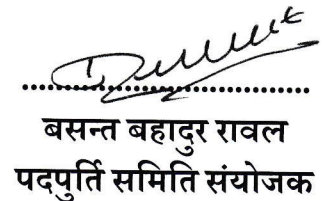 ................................
बसन्त बहादुर रावल
पदपुर्ति समिति संयोजक